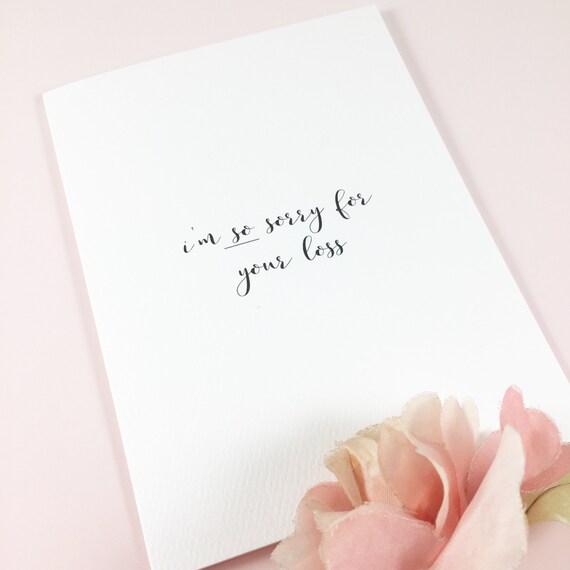 i'm so sorry for
your loss